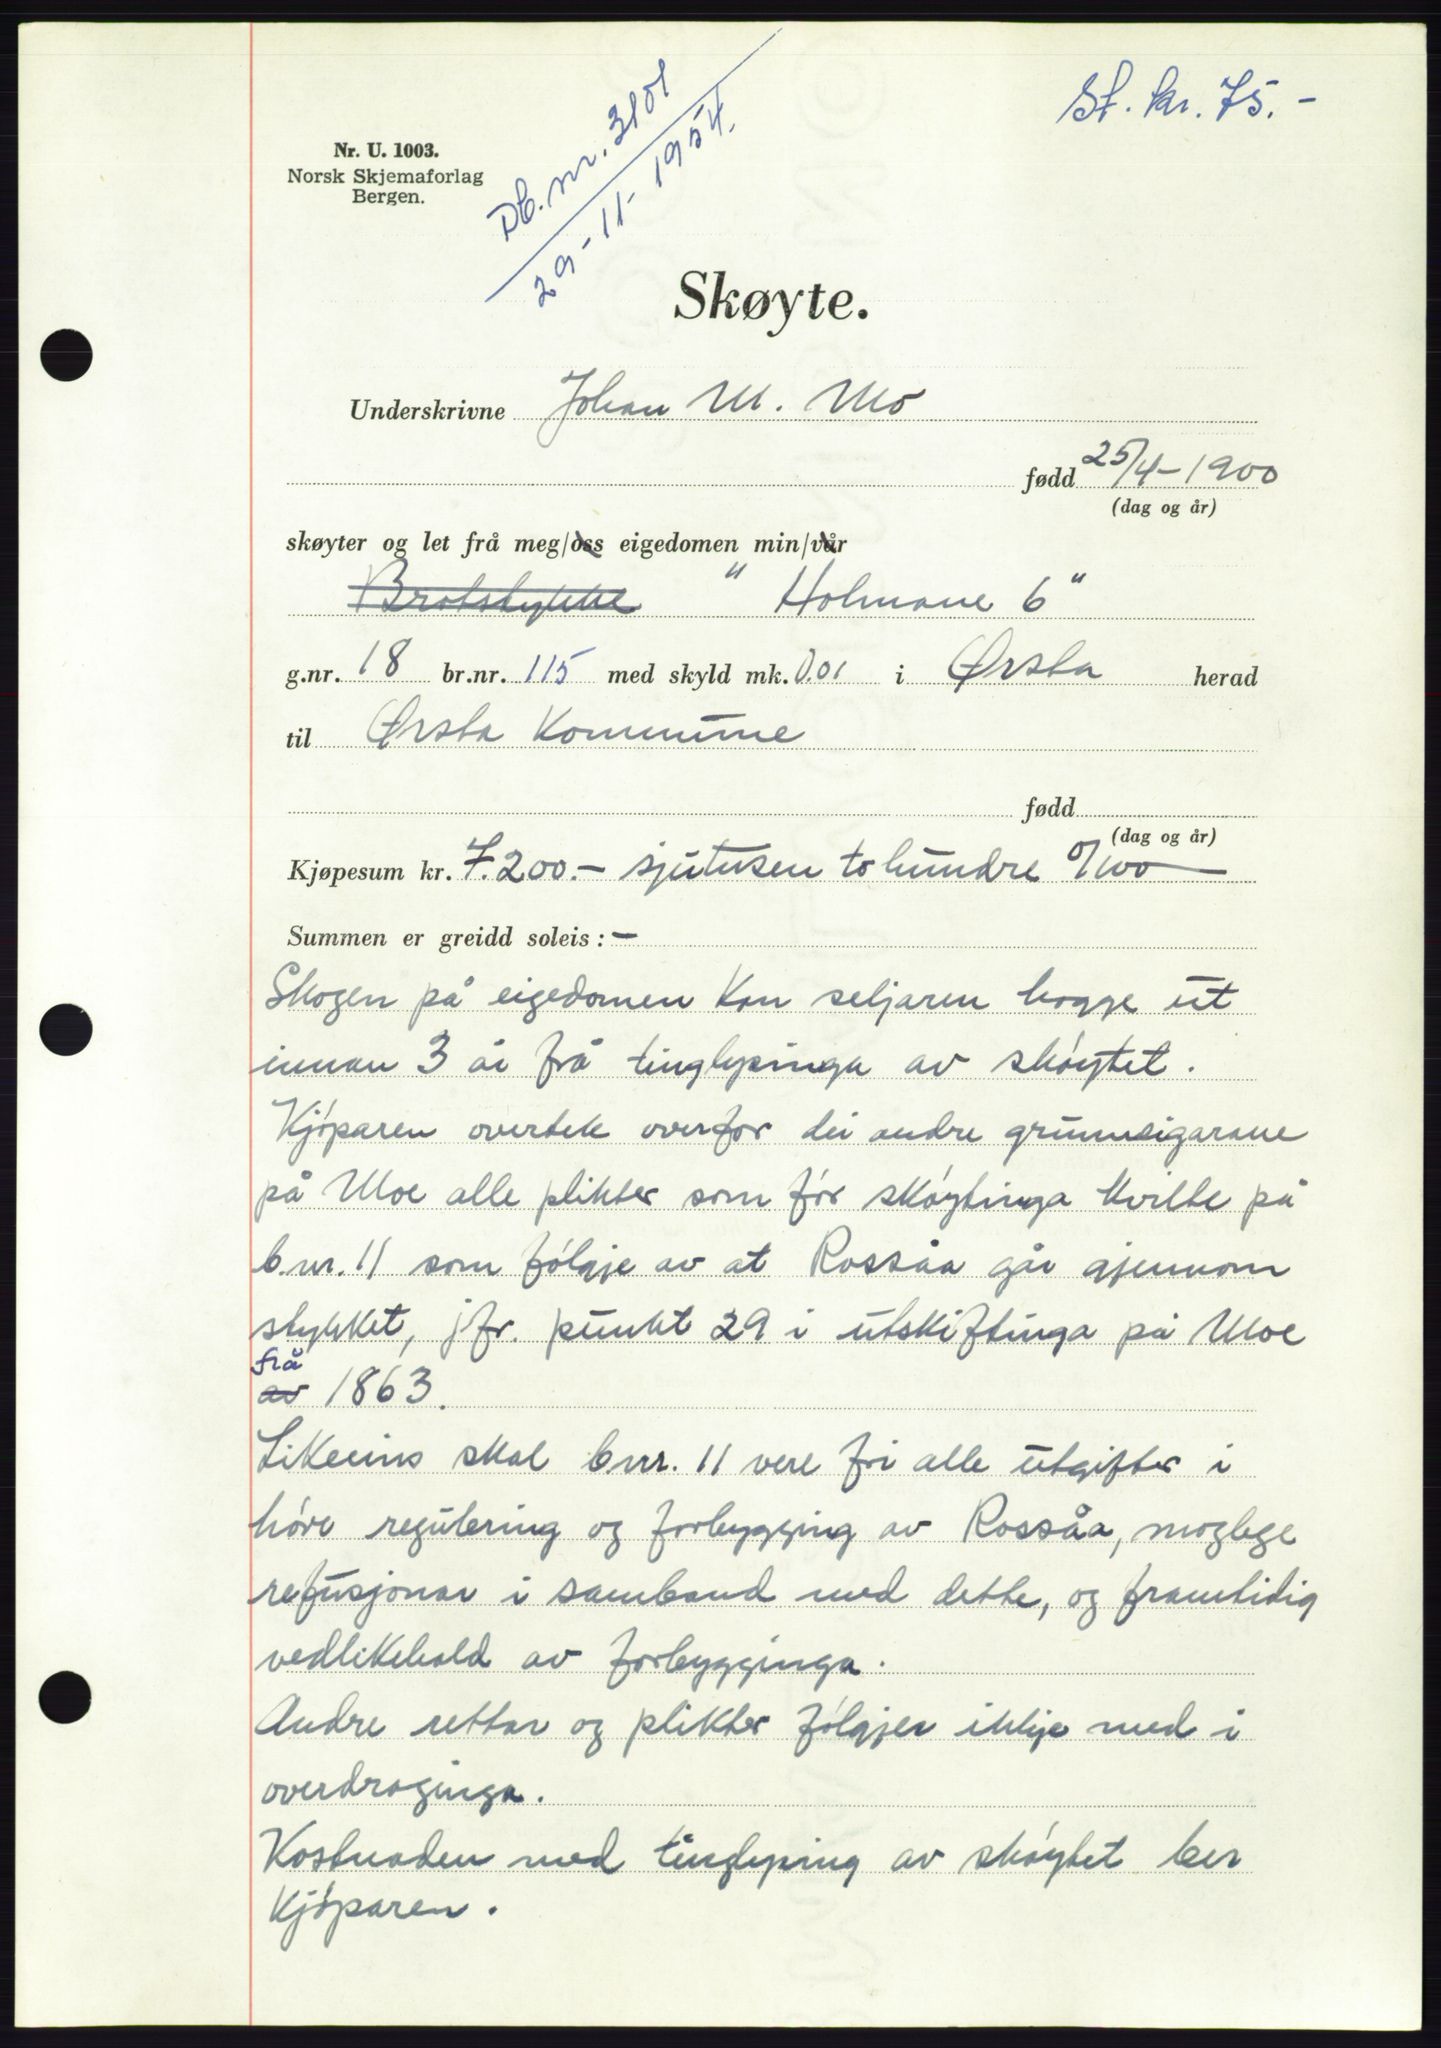 St. kr. 75.-
Db. nr. 3101
29-11-1954.
Nr. U. 1003.
Norsk Skjemaforlag
Bergen.
Skøyte.
Underskrivne Johan M. Mo
fødd 25/4-1900
(dag og år)
skøyter og let frå meg/oss eigedomen min/vår
Brotstykke "Holmane 6"
g.nr. 18 br.nr. 115 med skyld mk. 0.01 i Ørsta herad
til Ørsta Kommune
fødd
(dag og år)
Kjøpesum kr. 7.200.- sjutusen tohundre 0/100
Summen er greidd soleis: -
Skogen på eigedomen kan seljaren hogge ut
innan 3 år frå tinglysinga av skøytet.
Kjøparen overtek overfor dei andre grunneigarane
på Moe alle plikter som før skøytinga kvilte på
b.nr. 11 som følgje av at Rossåa går gjennom
stykket, jfr. punkt 29 i utskiftinga på Moe
frå
av 1863.
Likeeins skal bnr. 11 vere fri alle utgifter i
høve regulering og forbygging av Rossåa, moglege
refusjonar i samband med dette, og framtidig
vedlikehald av forbygginga.
Andre rettar og plikter følgjer ikkje med i
overdraginga.
Kostnaden med tinglysing av skøytet ber
Kjøparen.